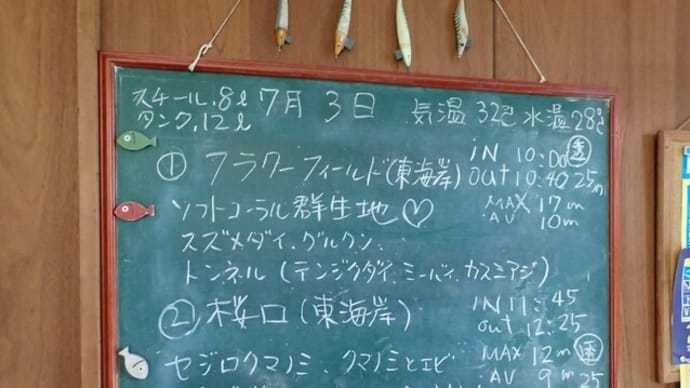 スチール.8ℓ 7月 3日 気温 32℃ 水温 28℃
タンク.12ℓ
① フラワーフィールド(東海岸) iN 10:00 透
out 10:40 25m
ソフトコーラル群生地♡ MAX 17m
AV 10m
スズメダイ.グルクン.
トンネル(テンジクダイ.ミーバイ.カスミアジ)
② 桜口(東海岸) IN 11:45
out 12:25
セジロクマノミ.クマノミとエビ MAX 12m 透
AV 9m 25